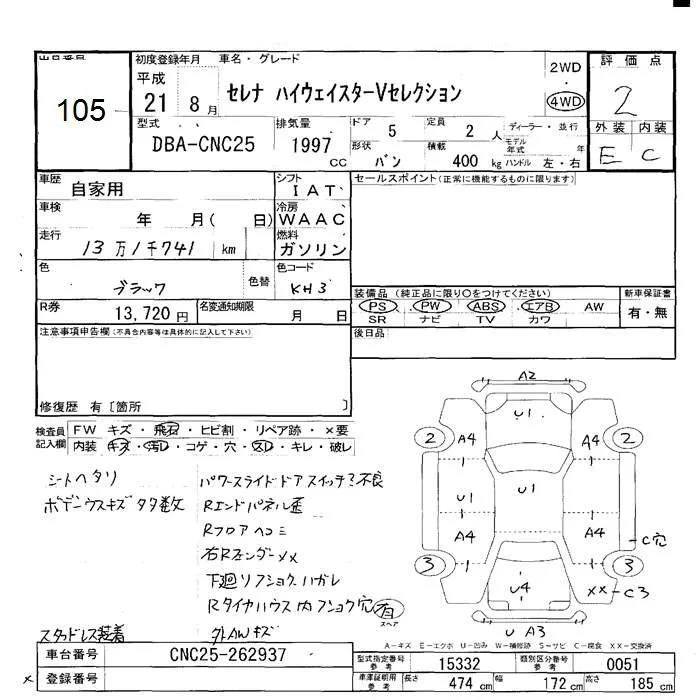 出品番号
105
初度登録年月
平成
21 8月
車名・グレード
セレナ ハイウェイスターVセレクション
2WD
・
4WD
評価点
2
外装 内装
E C
型式
DBA-CNC25
排気量
1997
CC
ドア 5
定員 2 人
形状 バン
積載 400 kg
ディーラー・並行
モデル年式 年
ハンドル 左・右
車歴 自家用
シフト IAT
車検 年 月( 日)
冷房 WAAC
走行 13万1千741 km
燃料 ガソリン
色 ブラック
色替
色コード KH3
R券 13,720円
名変通知期限 月 日
セールスポイント(正常に機能するものに限ります)
装備品(純正品に限り○をつけてください)
PS PW ABS エアB AW
SR ナビ TV カワ
新車保証書
有・無
後日品
注意事項申告欄(不具合内容等は具体的に記入して下さい)
修復歴 有〔箇所 〕
検査員記入欄
FW キズ・飛石・ヒビ割・リペア跡・×要
内装 キズ・汚レ・コゲ・穴・スレ・キレ・破レ
シートヘタリ
ボデーウスキズ多数
パワースライドドアスイッチ不良
Rエンドパネル歪
Rフロアヘコミ
右Rフェンダー××
下廻リフショクハガレ
Rタイヤハウス内フショク穴有
スペア
スタッドレス装着
外AWキズ
A2
U1
2 A4 A4 2
U1 U1
A4 A4
C穴
3 1 1 3
U4
××-C3
U A3
A-キズ E-エクボ U-凹み W-補修跡 S-サビ C-腐食 XX-交換済
車台番号 CNC25-262937
× 登録番号
型式指定番号 参考 15332
類別区分番号 参考 0051
車庫証明用 参考 長さ 474 cm 幅 172 cm 高さ 185 cm